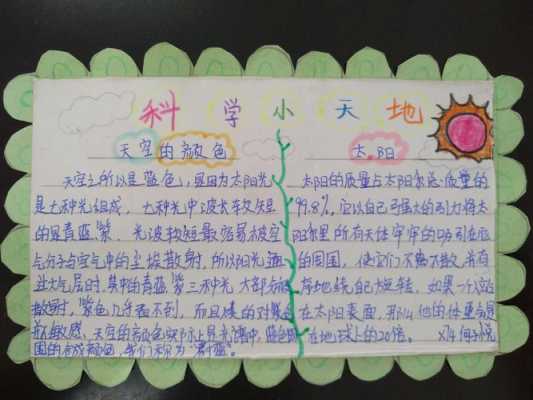 科学小天地
天空的颜色
天空之所以是蓝色,是因为太阳光
是七种光组成,七种光中波长较短
的是青蓝紫,光波较短最容易被空
气分子与空气中的尘埃散射,所以阳光
过大气层时,其中的青蓝紫三种光大部分被
散射,紫色几乎看不到,而且
敏感,天空的颜色实际上是光谱中,蓝色
围的合成颜色,我们称为"天蓝"。
太阳
太阳的质量占太阳系总质量的
99.8%,它以自己强大的引力将太
阳系里所有天体牢牢的吸引在它
的周围,使它们不离不散,井有
有地绕自己旋转,如果一个人站
在太阳表面,那么他的体重会是
在地球上的20倍。